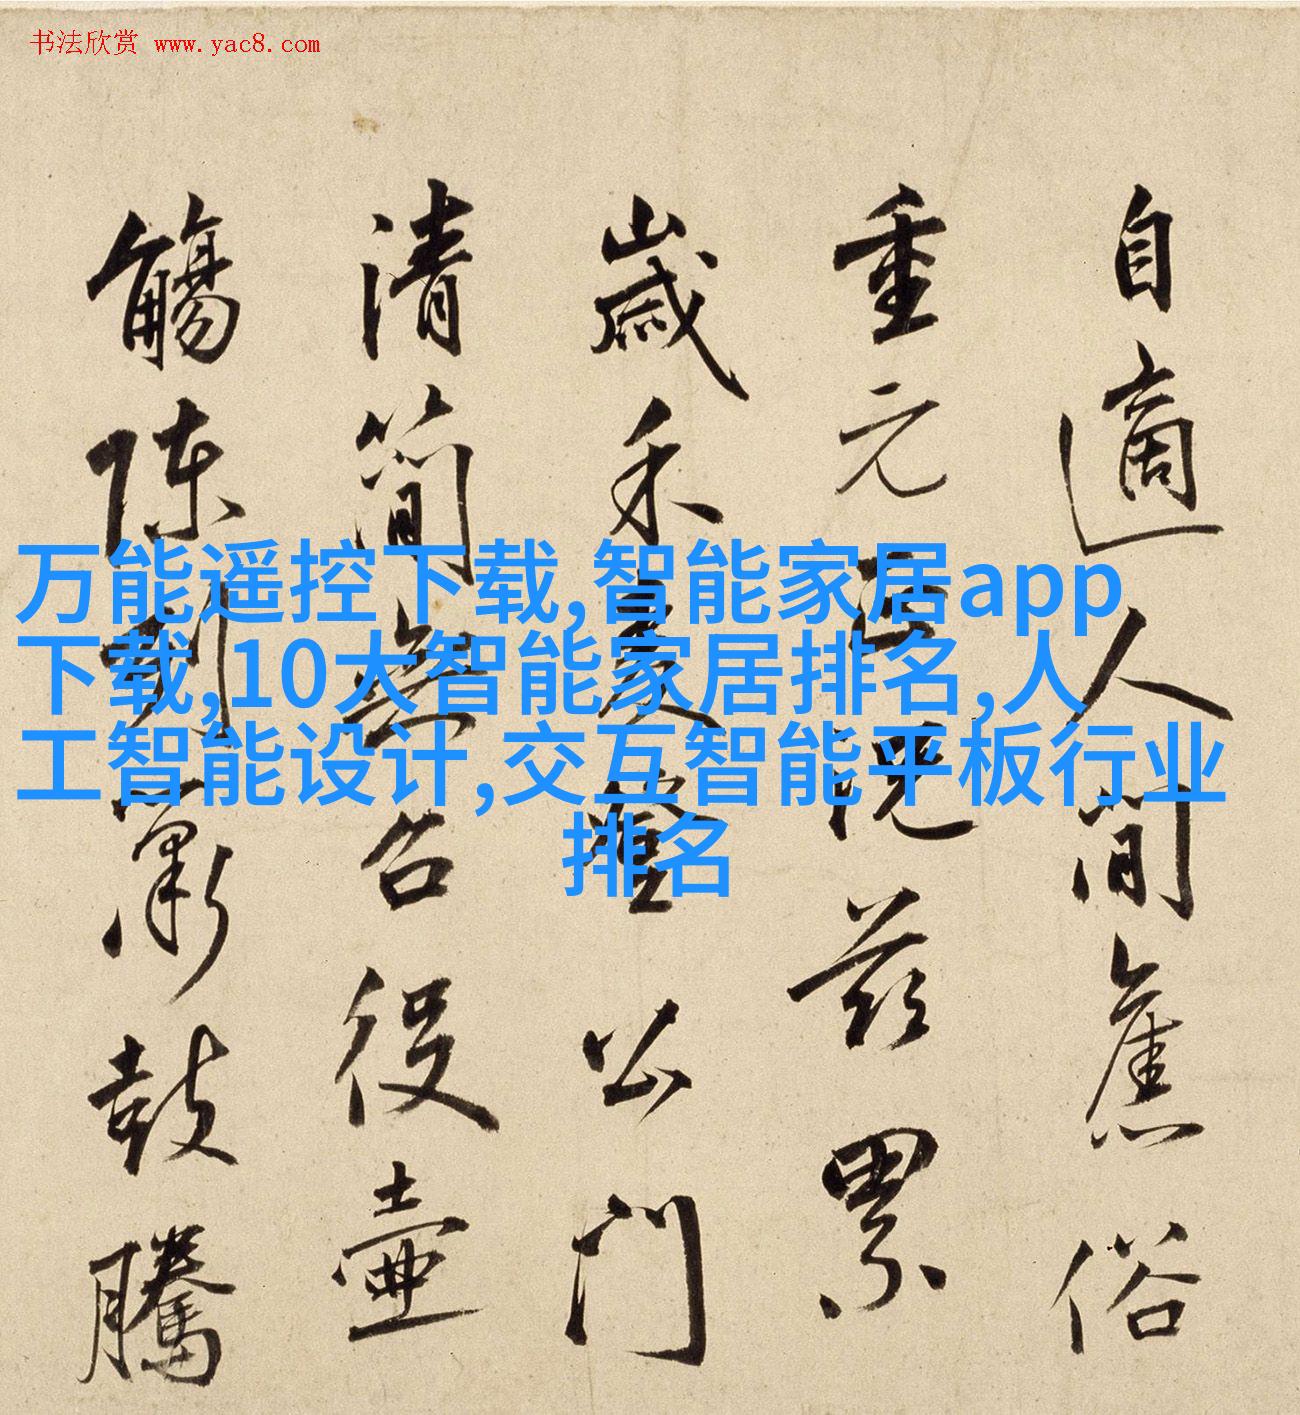 书法欣赏 www.yac8.com
自適人間舊俗
重元正況茲累
歲禾麥登公門
清簡無召役壺
觴陳列簫鼓騰
万能遥控下载,智能家居app
下载,10大智能家居排名,人
工智能设计,交互智能平板行业
排名